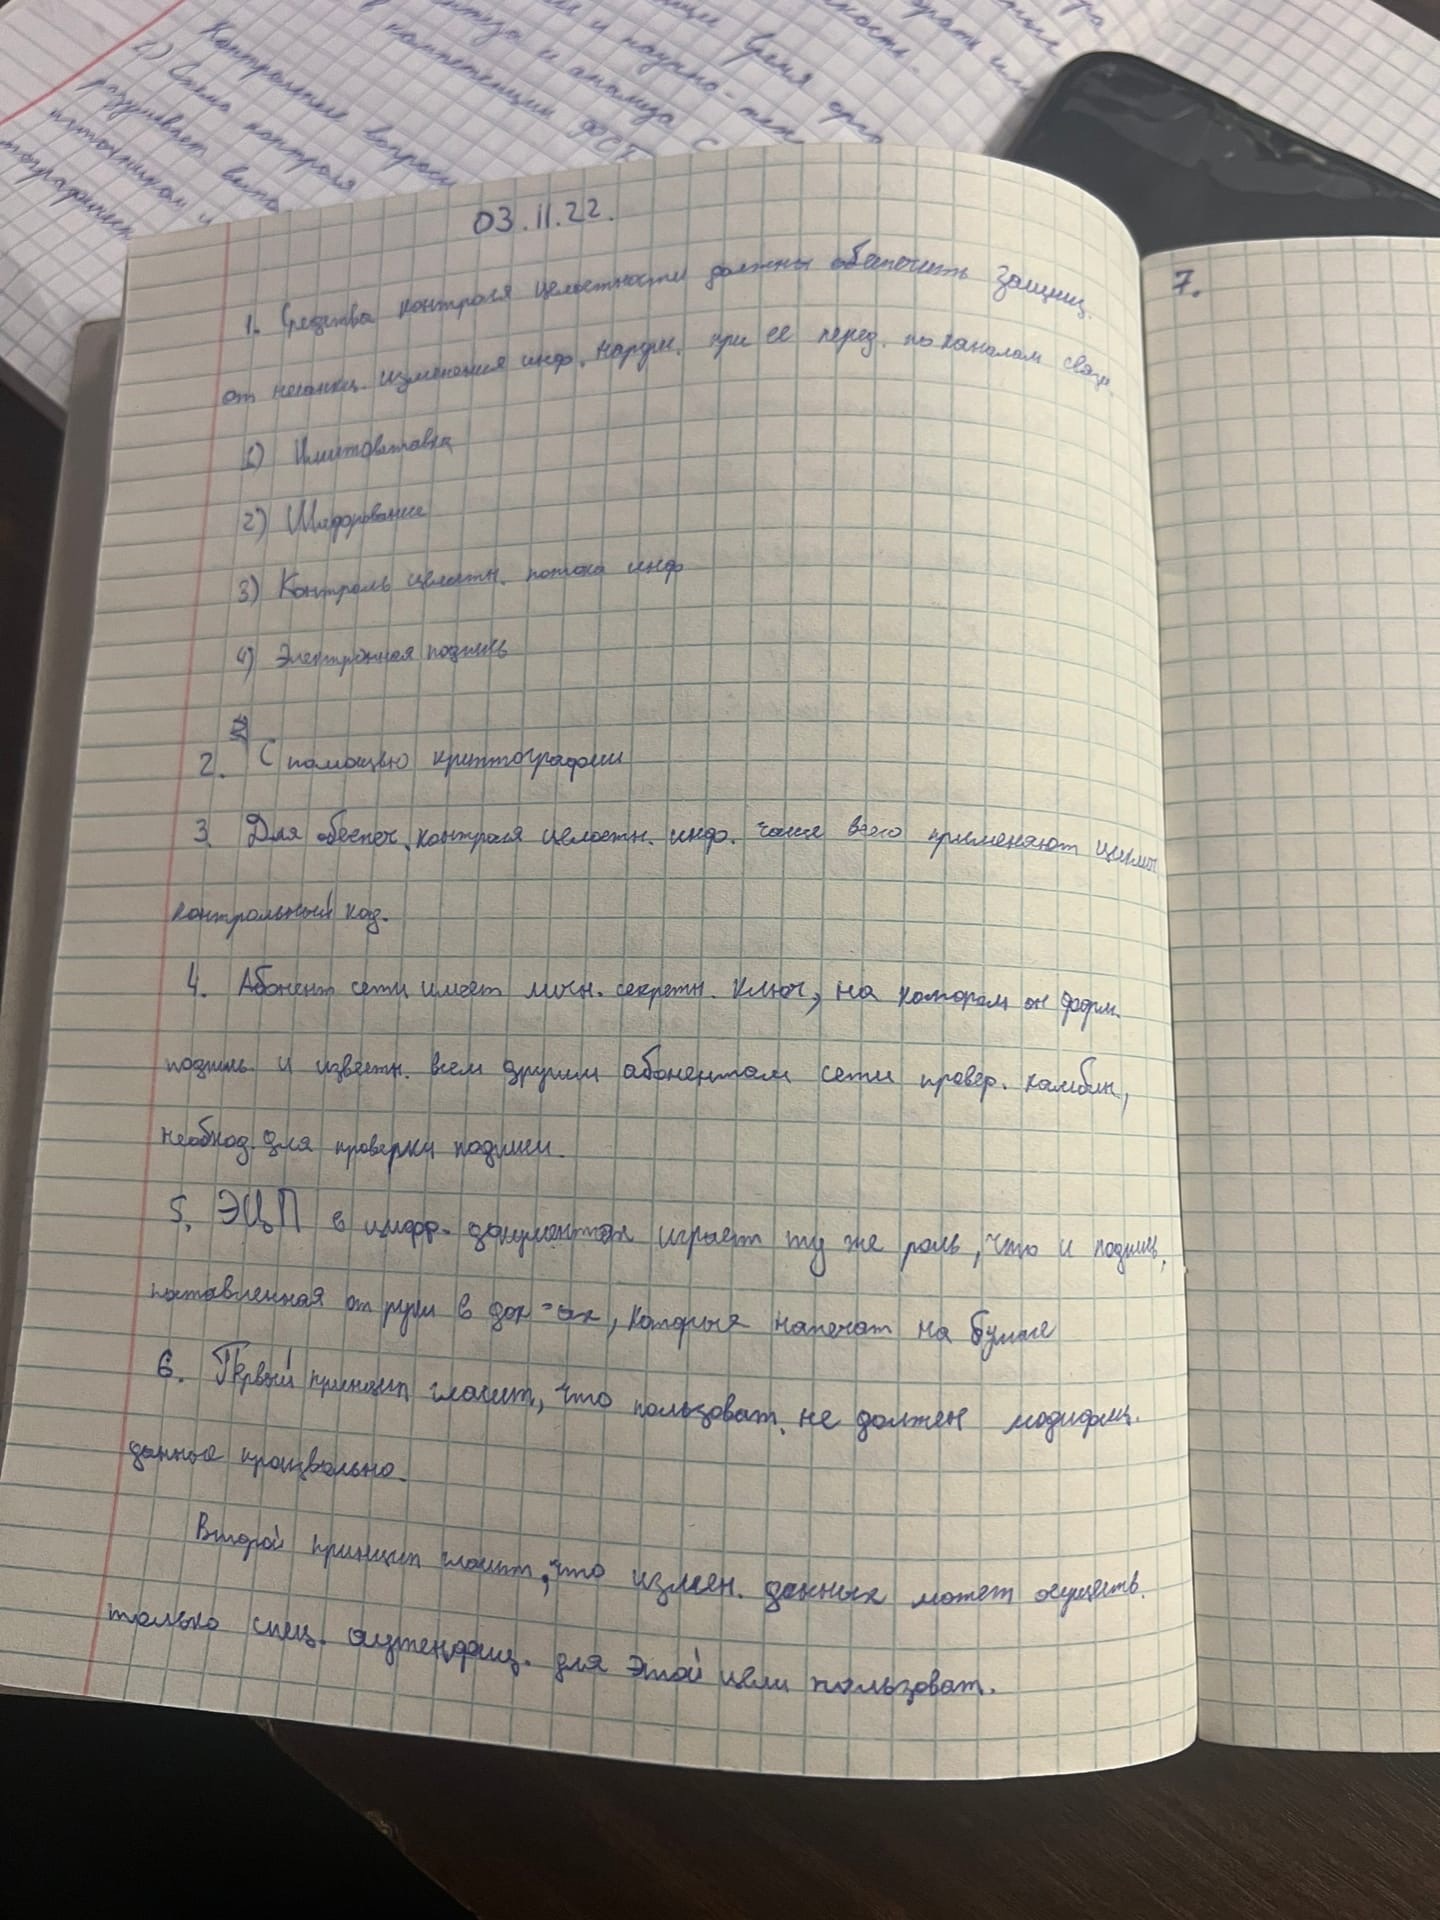 Контрольные вопросы
03.11.22.
1. Средства контроля целостности должны обеспечить защищ.
от несанкц. изменения инф. наруш. при ее перед. по каналам связи
1) Имитовставка
2) Шифрование
3) Контроль целостн. потока инф
4) Электронная подпись
2. С помощью криптографии
3. Для обеспеч. контроля целостн. инф. чаще всего применяют циклич
контрольный код.
4. Абонент сети имеет личн. секретн. ключ, на котором он форм.
подпись и известн. всем другим абонентам сети провер. комбин,
необход. для проверки подписи.
5. ЭЦП в цифр. документах играет ту же роль, что и подпись,
поставленная от руки в док-ах, которые напечат на бумаге
6. Первый принцип гласит, что пользоват. не должен модифиц.
данные произвольно.
Второй принцип гласит, что измен. данных может осуществ.
только спец. аутенфиц. для этой цели пользоват.
7.